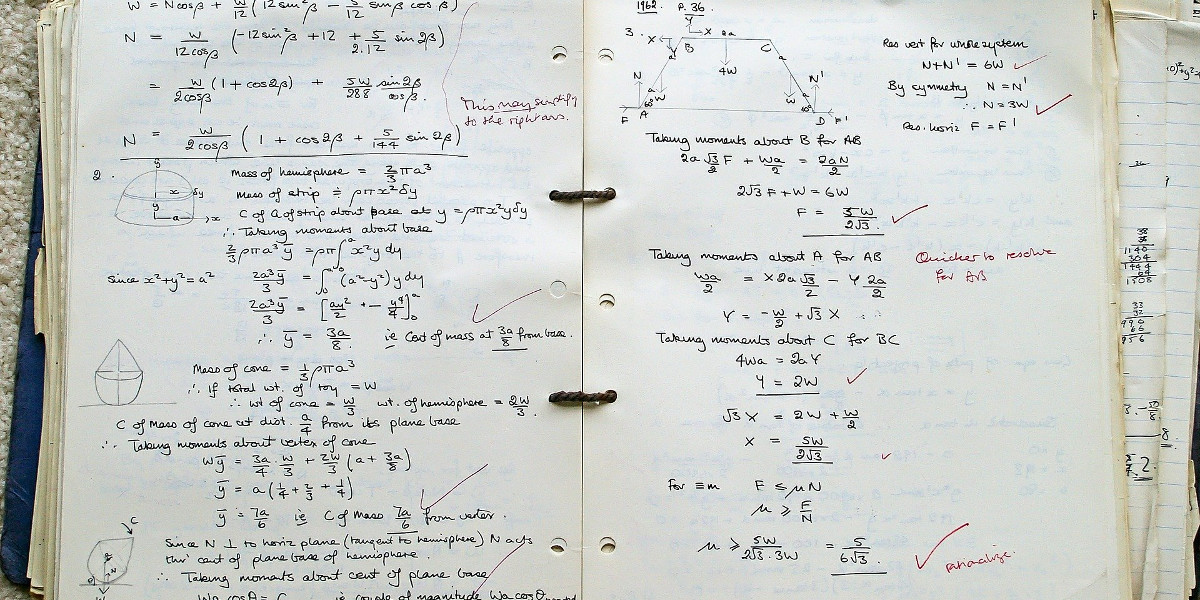 W = N cosβ + W/12 (12 sin²β − 5/12 sinβ cosβ)
N = W/12cosβ (-12sin²β + 12 + 5/2.12 sin 2β)
= W/2cosβ (1 + cos2β) + 5W/288 sin2β/cosβ.
This may simplify
to the right ans.
N = W/2cosβ (1 + cos2β + 5/144 sin 2β)
2.
y
x
δy
y
a
x
mass of hemisphere = 2/3 πa³
Mass of strip ≑ ρπx²δy
C of G of strip about base at y = ρπx²yδy
∴ Taking moments about base
2/3 ρπa³ȳ = ρπ∫₀ᵃ x²y dy
Since x²+y² = a²
2a³ȳ/3 = ∫₀ᵃ (a²-y²) y dy
2a³ȳ/3 = [ay²/2 - y⁴/4]₀ᵃ
∴ ȳ = 3a/8. ie Cent of mass at 3a/8 from base.
Mass of cone = 1/3 ρπa³
∴ If total wt. of toy = W
∴ wt of cone = W/3 wt. of hemisphere = 2W/3.
C of Mass of cone at dist. a/4 from its plane base
∴ Taking moments about vertex of cone
Wȳ = 3a/4 . W/3 + 2W/3 (a + 3a/8)
ȳ = a(1/4 + 2/3 + 1/4)
ȳ = 7a/6 ie C of Mass 7a/6 from vertex.
C
Since N ⊥ to horiz plane (tangent to hemisphere) N acts
thro' cent of plane base of hemisphere.
∴ Taking moments about cent of plane base
Wa cosθ = C ie couple of magnitude Wa cosθ
1962. P. 36
3.
Y
X
X
Y
B
2a
C
4W
a
a
a
N
W
W
N'
60°
60°
F
A
D
F'
Res vert for whole system
N+N' = 6W
By symmetry N = N'
∴ N = 3W
Res. horiz F = F'
Taking moments about B for AB
2a√3/2 F + Wa/2 = 2aN/2
2√3F + W = 6W
F = 5W/2√3.
Taking moments about A for AB
Quicker to resolve
for AB
Wa/2 = X 2a √3/2 - Y 2a/2
Y = -W/2 + √3 X
Taking moments about C for BC
4Wa = 2aY
Y = 2W
√3 X = 2W + W/2
X = 5W/2√3
For ≡m F ≤ μN
μ ≥ F/N
μ ≥ 5W/2√3.3W = 5/6√3
rationalize.
38
1140
304
1444
64
1508
33
32
990
66
956